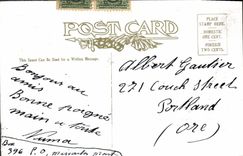 POST CARD
PLACE STAMP HERE
DOMESTIC
ONE CENT
FOREIGN
TWO CENTS
This Space Can Be Used for a Written Message.
Bonjour au
amis
Bonne poignée
main a toute
Numa
Box
396 P.O.
Albert Gautier
271 Couch street
Portland
(Ore)